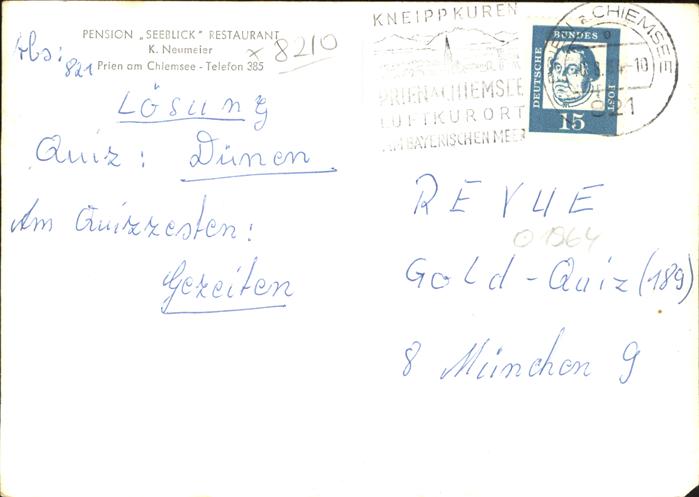 PENSION „SEEBLICK" RESTAURANT
K. Neumeier
Prien am Chiemsee - Telefon 385
Abs:
821
x 8210
LÖSUNG
Quiz: Dünen
Am Quizzesten:
Gezeiten
KNEIPPKUREN
PRIEN A CHIEMSEE
LUFTKURORT
AM BAYERISCHEN MEER
DEUTSCHE BUNDES POST
15
PRIEN a CHIEMSEE
821
REVUE
O 1964
Gold-Quiz (189)
8 München 9